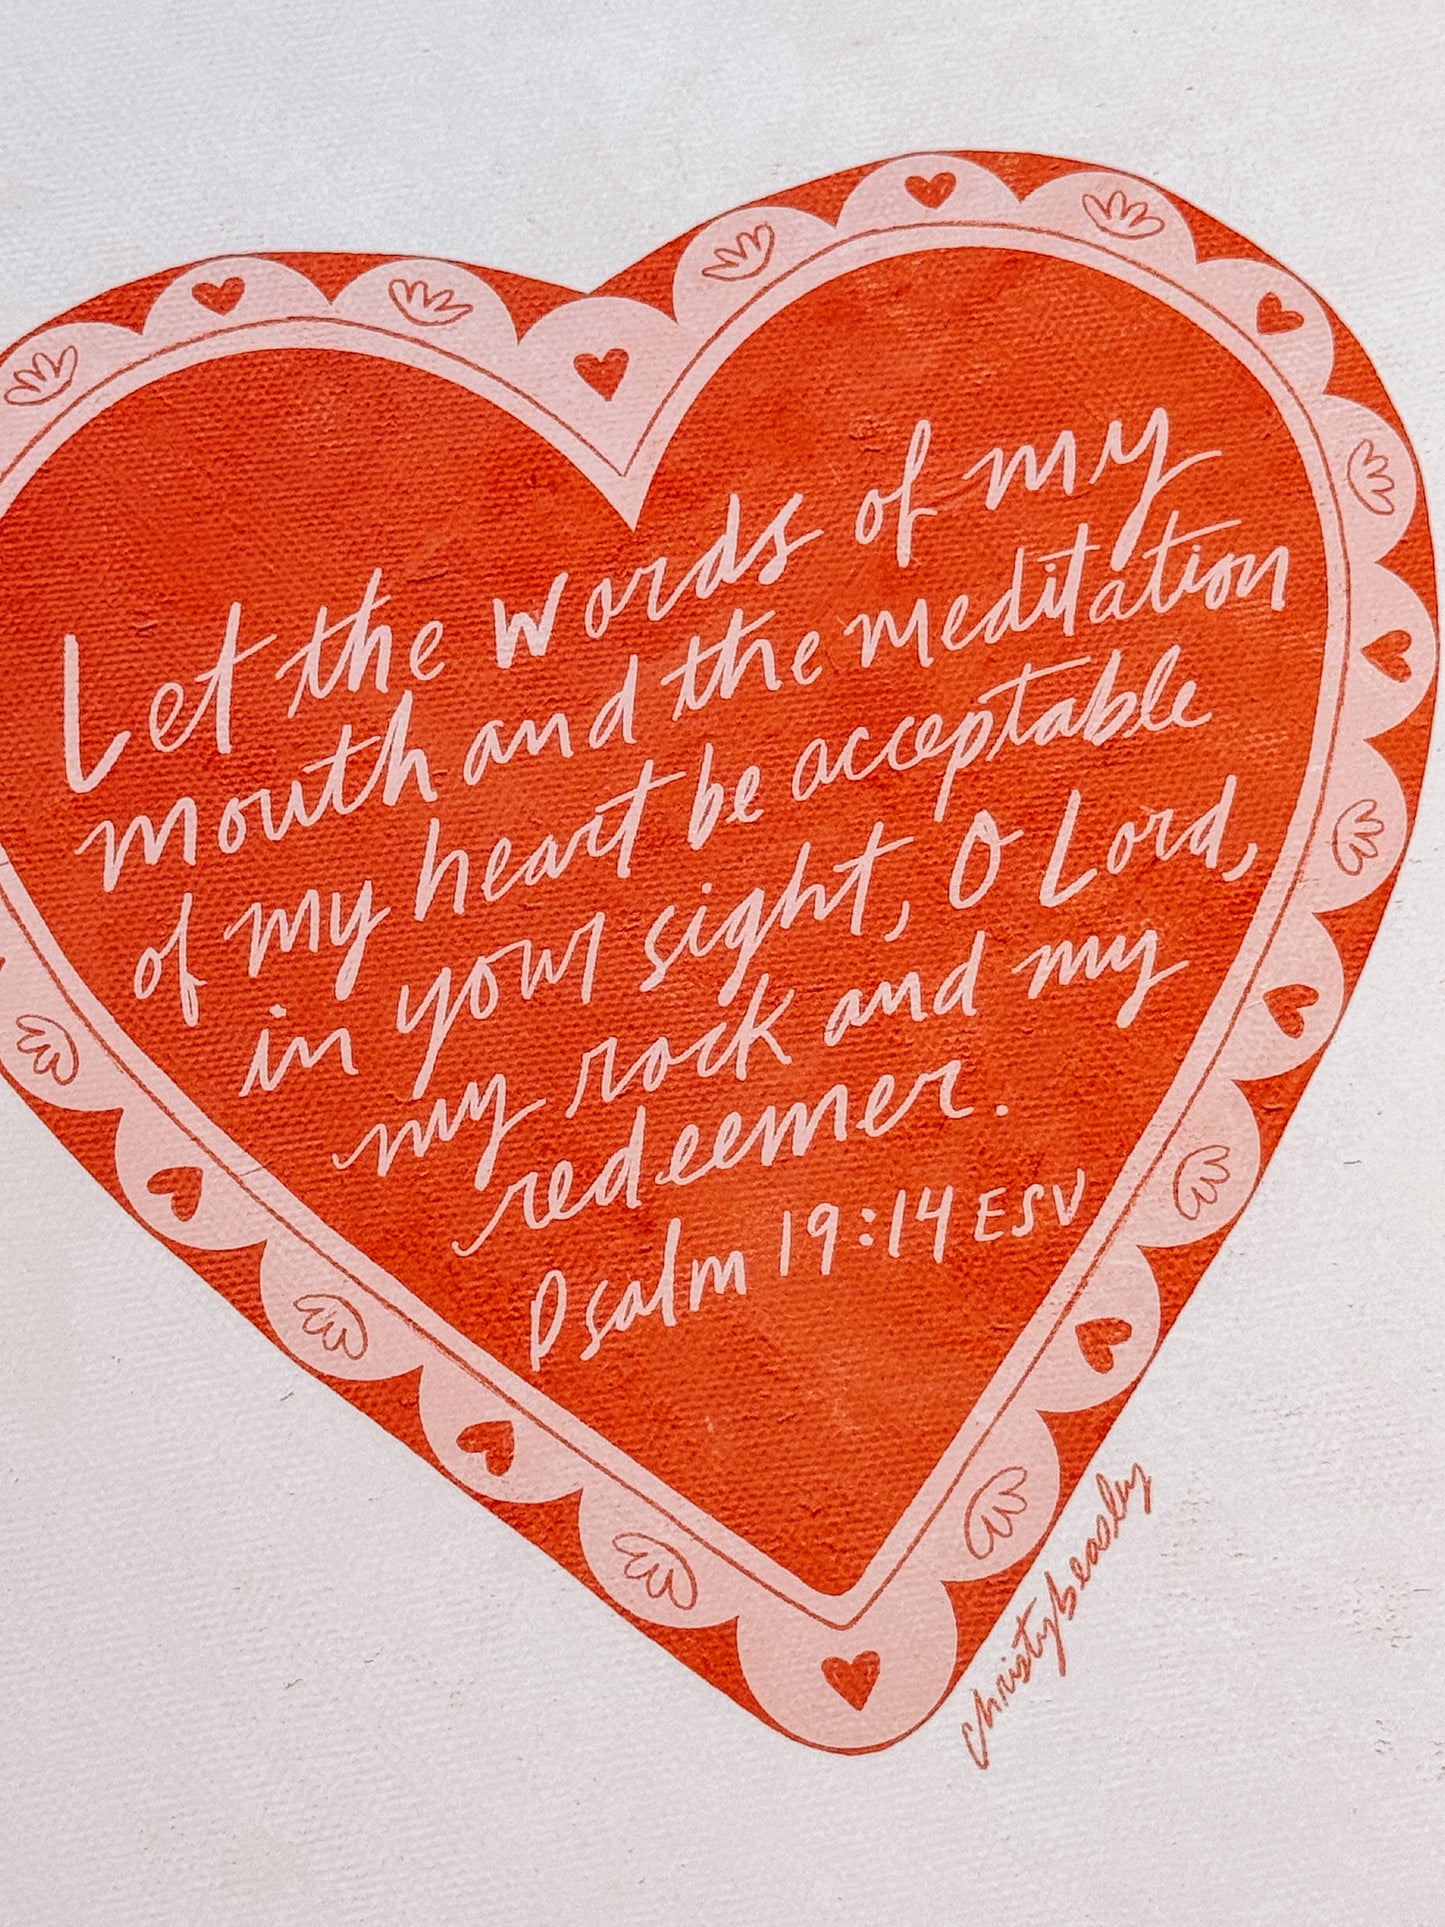 Let the words of my
mouth and the meditation
of my heart be acceptable
in your sight, O Lord,
my rock and my
redeemer.
Psalm 19:14 ESV
christybeasley